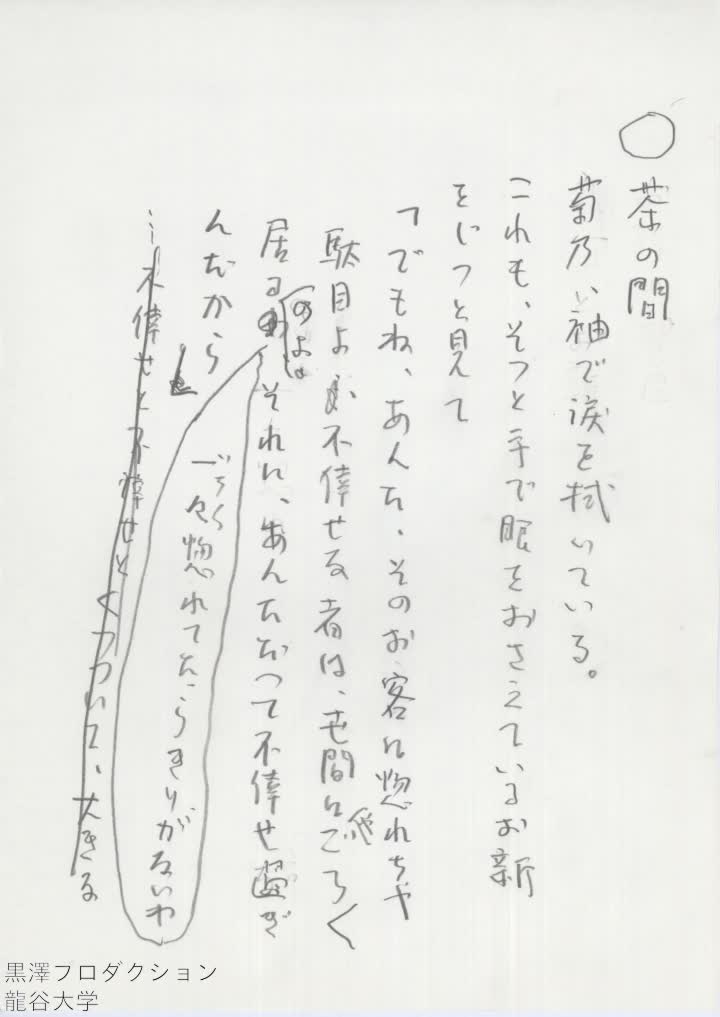 ○茶の間
菊乃、袖で涙を拭いている。
これも、そっと手で眼をおさえているお新
をじっと見て
「でもね、あんた、そのお客に惚れちゃ
駄目よ 不倖せな者は、世間にごろ〱
居るのよ それに、あんただって不倖せ過ぎ
んだから
いちいち惚れてたらきりがないわ
…不倖せと不倖せとくっついて、大きな
黒澤プロダクション
龍谷大学